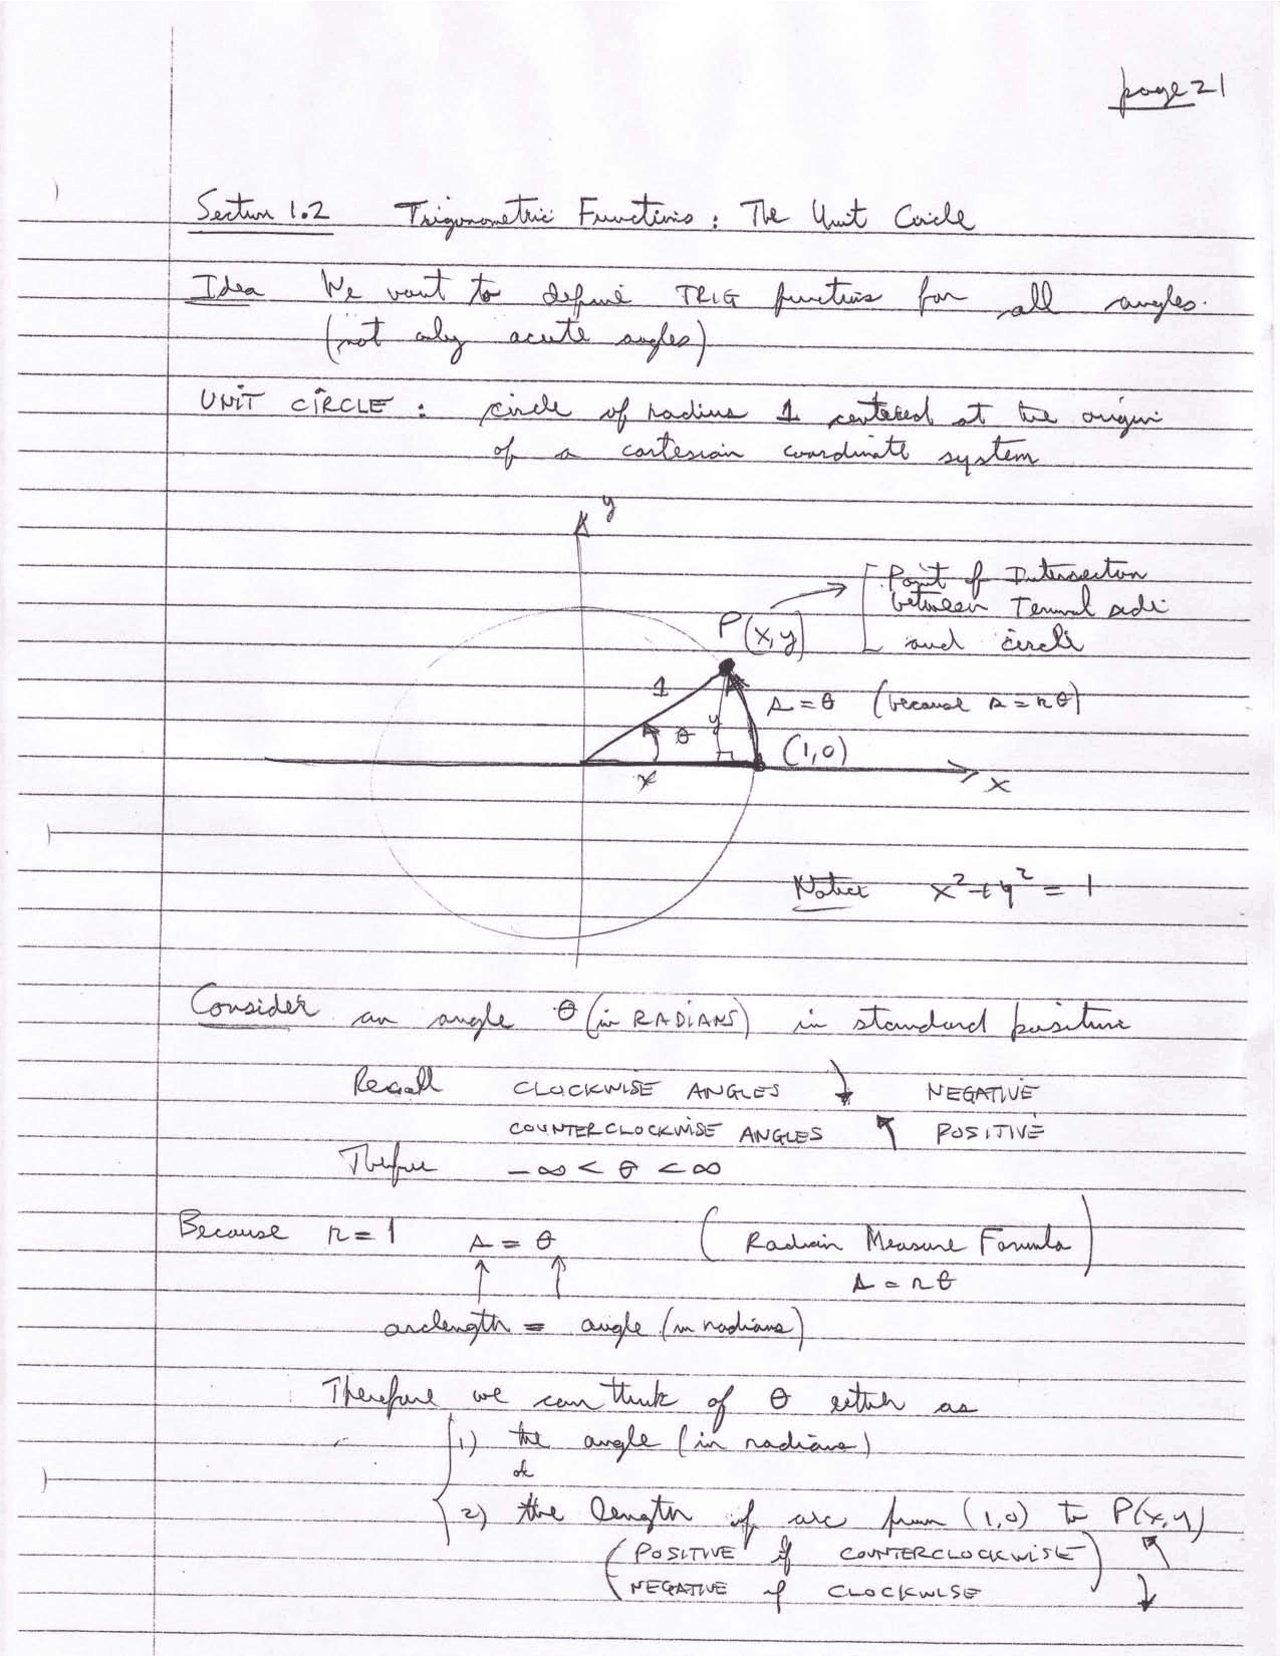 page 21
Section 1.2 Trigonometric Functions : The Unit Circle
Idea We want to define TRIG functions for all angles.
(not only acute angles)
UNIT CIRCLE : circle of radius 1 centered at the origin
of a cartesian coordinate system
y
Point of Intersection
between Terminal side
and circle
P(x,y)
1
s = θ (because s = rθ)
θ y
(1,0)
x
x
Notice x² + y² = 1
Consider an angle θ (in RADIANS) in standard position
Recall CLOCKWISE ANGLES NEGATIVE
COUNTERCLOCKWISE ANGLES POSITIVE
Therefore −∞ < θ < ∞
Because r = 1 s = θ (Radian Measure Formula)
s = rθ
arclength = angle (in radians)
Therefore we can think of θ either as
1) the angle (in radians)
or
2) the length of arc from (1,0) to P(x,y)
(POSITIVE if COUNTERCLOCKWISE)
(NEGATIVE if CLOCKWISE